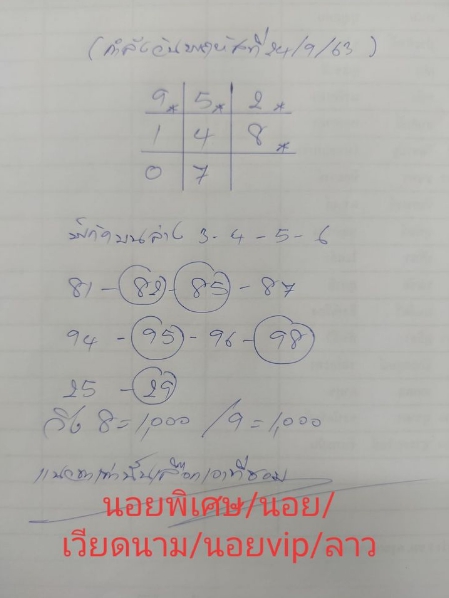 (กำลังวันพฤหัสที่ 24/9/63)
9* 5* 2*
1 4 8*
0 7
พิกัดบนล่าง 3-4-5-6
81-82-85-87
94-95-96-98
25-29
วิ่ง 8=1,000/9=1,000
แนวทางเท่านั้นเลือกเอาที่ชอบ
นอยพิเศษ/นอย/
เวียดนาม/นอยvip/ลาว